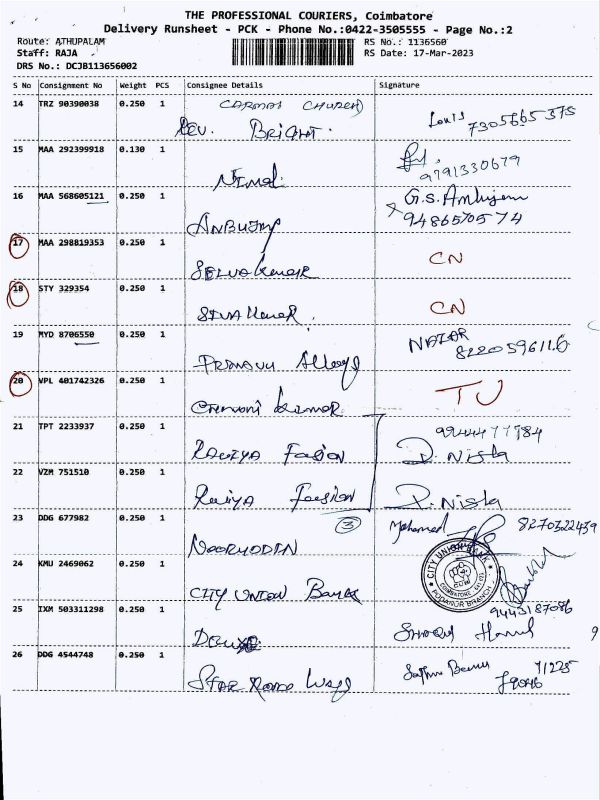 THE PROFESSIONAL COURIERS, Coimbatore
Delivery Runsheet - PCK - Phone No.:0422-3505555 - Page No.:2
Route: ATHUPALAM RS No.: 1136560
Staff: RAJA RS Date: 17-Mar-2023
DRS No.: DCJB113656002
S No Consignment No Weight PCS Consignee Details Signature
14 TRZ 90390038 0.250 1 CARMAL CHURCH)
Rev. BRIGHT. Louis 7305665375
15 MAA 292399918 0.130 1
Nimal 9791330679
16 MAA 568605121 0.250 1 G.S. Ambujam
9486570574
17 MAA 298819353 0.250 1
Selvakumar CN
18 STY 329354 0.250 1
SIVA Kumar. CN
19 MYD 8706550 0.250 1
Alloys 8220596116
20 VPL 401742326 0.250 1 TU
Kumar
21 TPT 2233937 0.250 1 9944477784
D. Nisha
22 VZM 751510 0.250 1
D. Nisha
23 DDG 677982 0.250 1 3 Mohamed 8270322439
NOORUDDIN
24 KMU 2469062 0.250 1 CITY UNION BANK
CITY UNION Bank PODANUR BRANCH
25 IXM 503311298 0.250 1 9443187086
26 DDG 4544748 0.250 1 71225
STAR Ways 79046
9